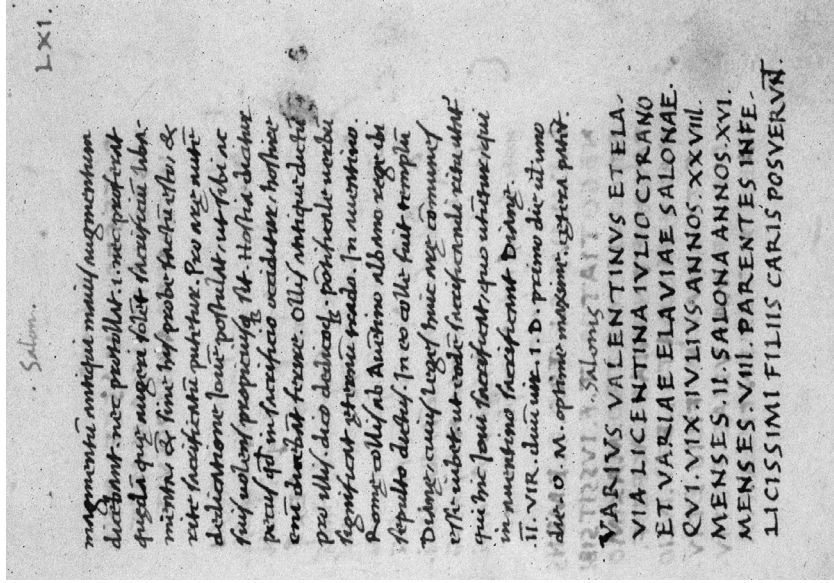 LXI.
Salon.
magmentū antiqui maius augmentum
dicebant. nec protollat. i. nec proferat
quedā que augeri solēt sacrificiū ubi
mentu, & sine his probe factū esto, &
rite sacrificatū putetur. Pro nec autē
dedicatione Iouē postulat, ut sibi ac
suis uolens propiciusq; sit. Hostia dicitur
pecus qd in sacrificio occiditur, hostiae
enī dicebāt ferire. Ollis antique dictū
pro illis. dico dedicoq; pōtificale uerbū
significat eternū reddo. In auentino.
Rome collis ab Auentino albano rege ibi
sepulto dictus. In eo colle fuit templū
Diane, cuius leges huic arae cōmunes
esse iubet. ut eodē sacrificandi ritu utant̄
qui hic Ioui sacrificāt, quo utūtur, qui
in auentino sacrificant Diane.
II. VIR. duū uir. I. D. primo die ut imo
dic. O. M. optimo maximo. cetera patēt.
VARIVS VALENTINVS ET ELA-
VIA LICENTINA IVLIO CYRANO
ET VARIAE ELAVIAE SALONAE.
QVI. VIX. IVLIVS ANNOS. XXVIII.
MENSES. II. SALONA ANNOS. XVI.
MENSES. VIII. PARENTES INFE-
LICISSIMI FILIIS CARIS POSVERVN̄T.